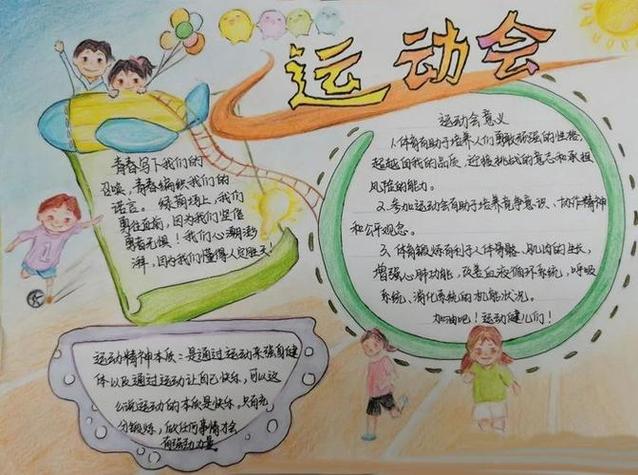 运动会
青春写下我们的
召唤，青春编织我们的
诺言。绿荫场上，我们
勇往直前，因为我们坚信
勇者无惧！我们心潮澎
湃，因为我们懂得人定胜天！
运动会意义
1.体育有助于培养人们勇敢顽强的性格，
超越自我的品质，迎接挑战的意志和承担
风险的能力。
2.参加运动会有助于培养竞争意识、协作精神
和公平观念。
3.体育锻炼有利于人体骨骼、肌肉的生长，
增强心肺功能，改善血液循环系统、呼吸
系统、消化系统的机能状况。
加油吧！运动健儿们！
运动精神本质：是通过运动来强自健
体以及通过运动让自己快乐，可以这
么说运动的本质是快乐，只有充
分锻炼，做任何事情才会
有强动力量